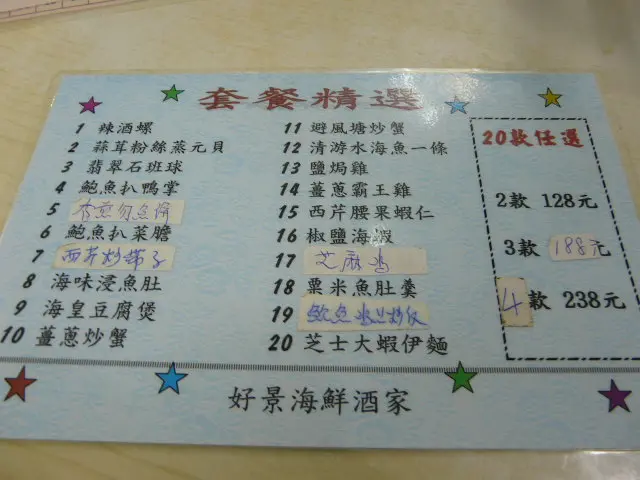 套餐精選
1 辣酒螺
2 蒜茸粉絲蒸元貝
3 翡翠石班球
4 鮑魚扒鴨掌
5
6 鮑魚扒菜膽
7 西芹炒帶子
8 海味浸魚肚
9 海皇豆腐煲
10 薑蔥炒蟹
11 避風塘炒蟹
12 清游水海魚一條
13 鹽焗雞
14 薑蔥霸王雞
15 西芹腰果蝦仁
16 椒鹽海蝦
17 芝麻鸡
18 粟米魚肚羹
19
20 芝士大蝦伊麵
20款任選
2款 128元
3款 188元
4款 238元
好景海鮮酒家